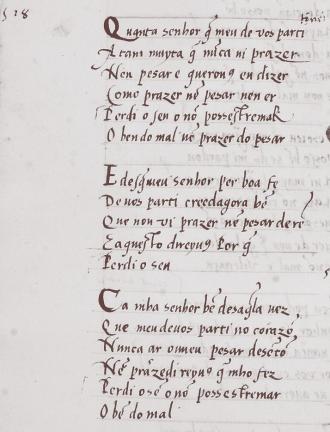 518
Quãta senhor q̃ meu de vos parti
Atam muyta q̃ nũca ui prazer
Nen pesar e querouꝯ eu dizer
Como prazer nẽ pesar non er
Perdi o sen e nõ possestremar
O ben do mal nẽ prazer do pesar
E desq̃meu senhor per boa fe
De vos parti creedagora bẽ
Que non vi prazer nẽ pesar de rẽ
E aquesto direyuꝯ por q̃
Perdi o sen
Ca mha senhor bẽ des aq̃la vez
Que meu de vos parti no coraçõ
Nunca ar ouueu pesar des entõ
Nẽ prazer e direyuꝯ q̃ mho fez
Perdi o sẽ e nõ poss estremar
O bẽ do mal